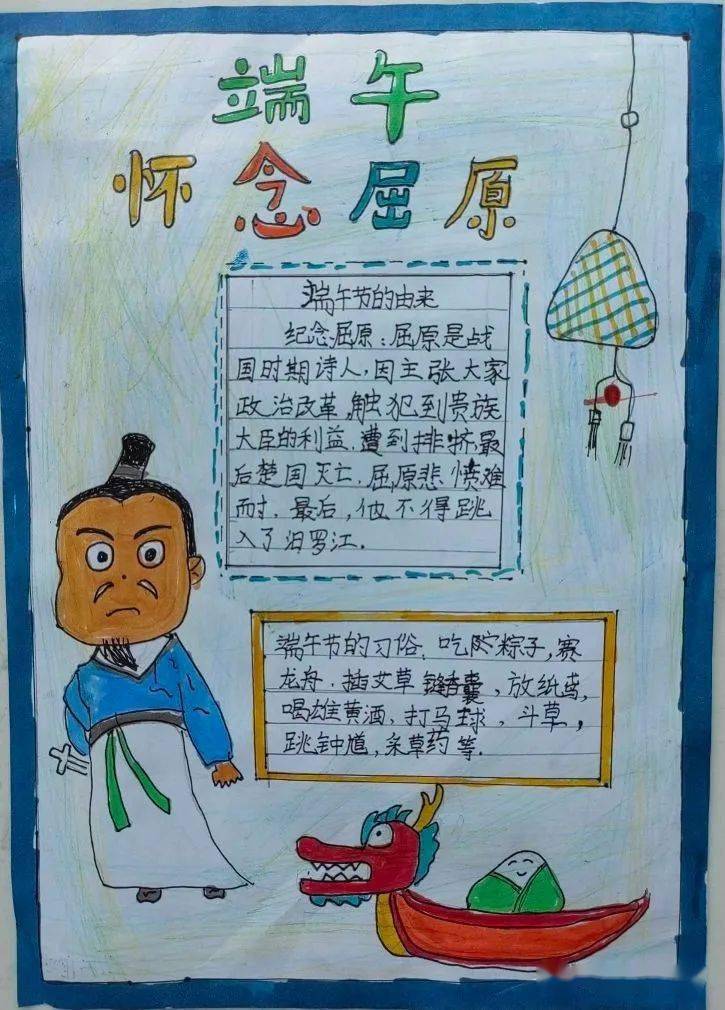 端午
怀念屈原
端午节的由来
纪念屈原：屈原是战
国时期诗人，因主张大家
政治改革，触犯到贵族
大臣的利益，遭到排挤，最
后楚国灭亡，屈原悲愤难
耐，最后，他不得跳
入了汨罗江.
端午节的习俗、吃粽子，赛
龙舟、插艾草 香囊、放纸鸢，
喝雄黄酒、打马球、斗草，
跳钟馗，采草药等.